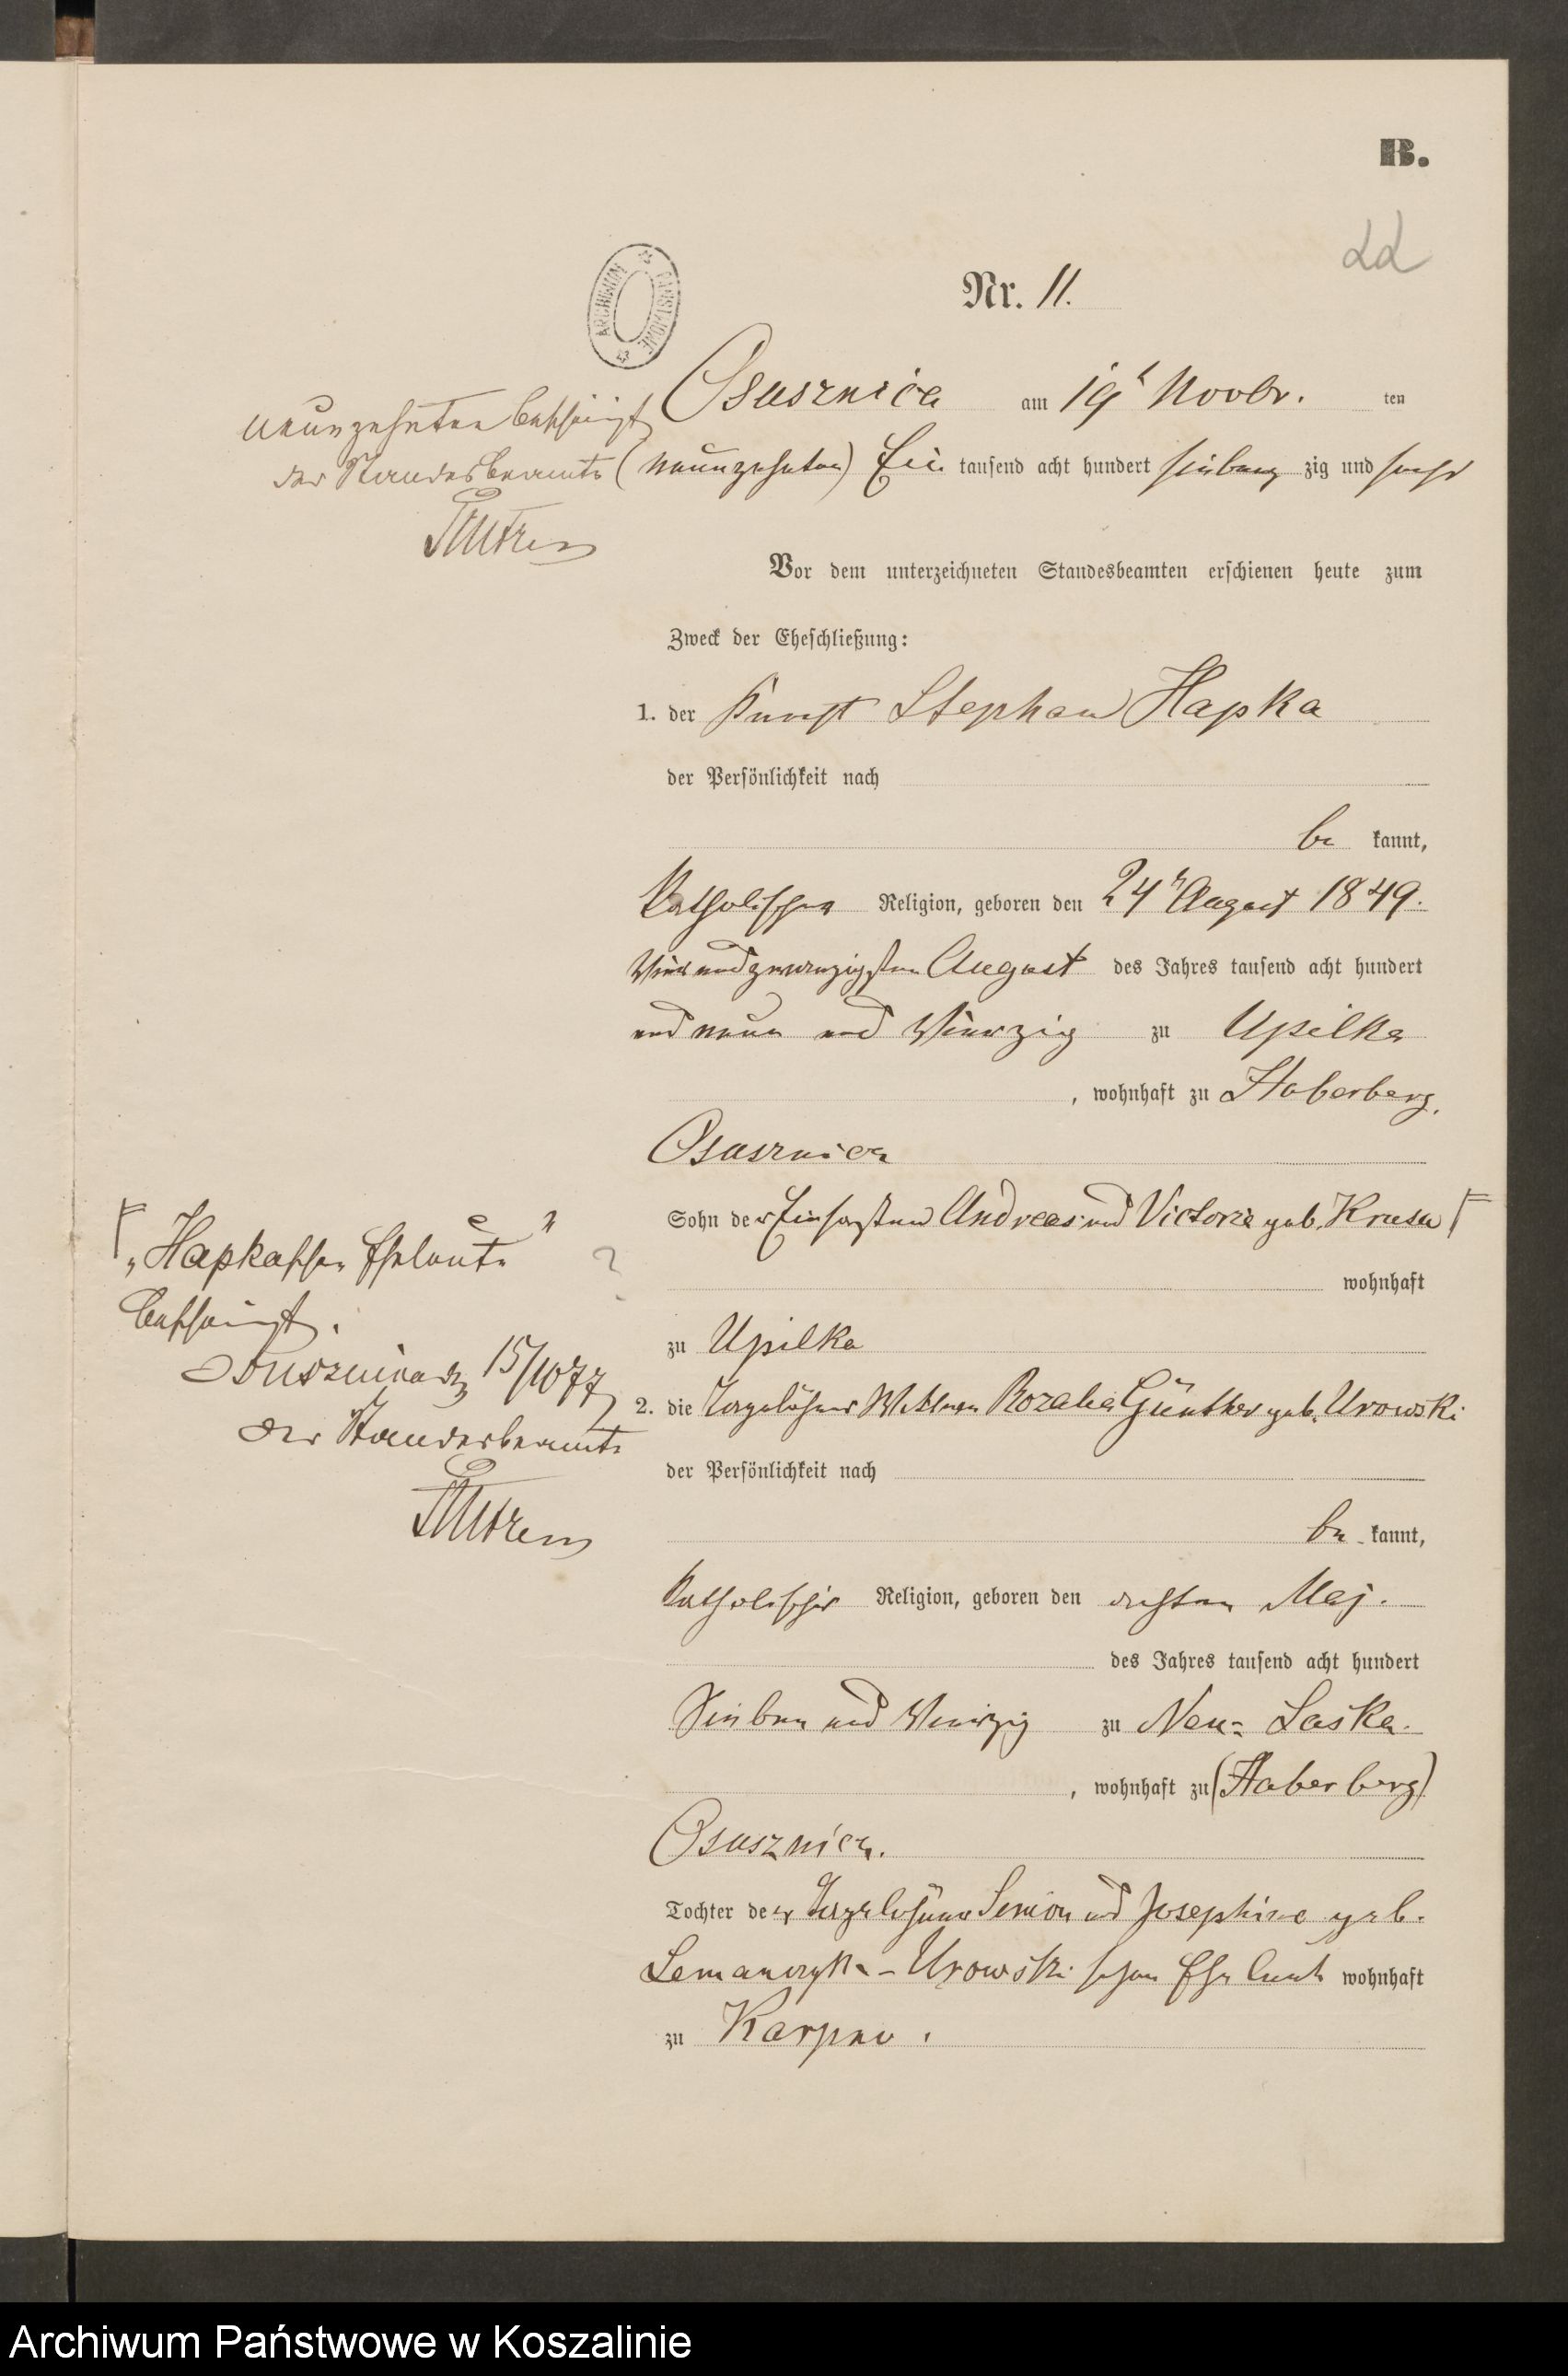 B.
22
Nr. 11.
ARCHIWUM PAŃSTWOWE
Osusznica am 19t Novbr. ten
(neunzehnten) Ein tausend acht hundert siebenzig und sechs
neunzehnten bescheinigt
der Standesbeamte
Vor dem unterzeichneten Standesbeamten erschienen heute zum
Zweck der Eheschließung:
1. der Knecht Stephan Hapka
der Persönlichkeit nach
be kannt,
katholischer Religion, geboren den 24t August 1849.
vier und zwanzigsten August des Jahres tausend acht hundert
und neun und vierzig zu Upilka
, wohnhaft zu Haberberg,
Osusznica
Sohn der Einsassen Andreas und Victoria geb.
wohnhaft
zu Upilka
„Hapkaschen Eheleute"
bescheinigt.
Osusznica den 15/10 77
der Standesbeamte
2. die Tagelöhner Wittwe Rozalia Günther geb. Urowski
der Persönlichkeit nach
be kannt,
katholischer Religion, geboren den achten Maj.
des Jahres tausend acht hundert
Sieben und vierzig zu Neu= Laska.
, wohnhaft zu (Haberberg)
Osusznica.
Tochter der Tagelöhner Simon und Josephine geb.
Lemanczyk - Urowski schen Ehe leute wohnhaft
zu Karpno.
Archiwum Państwowe w Koszalinie